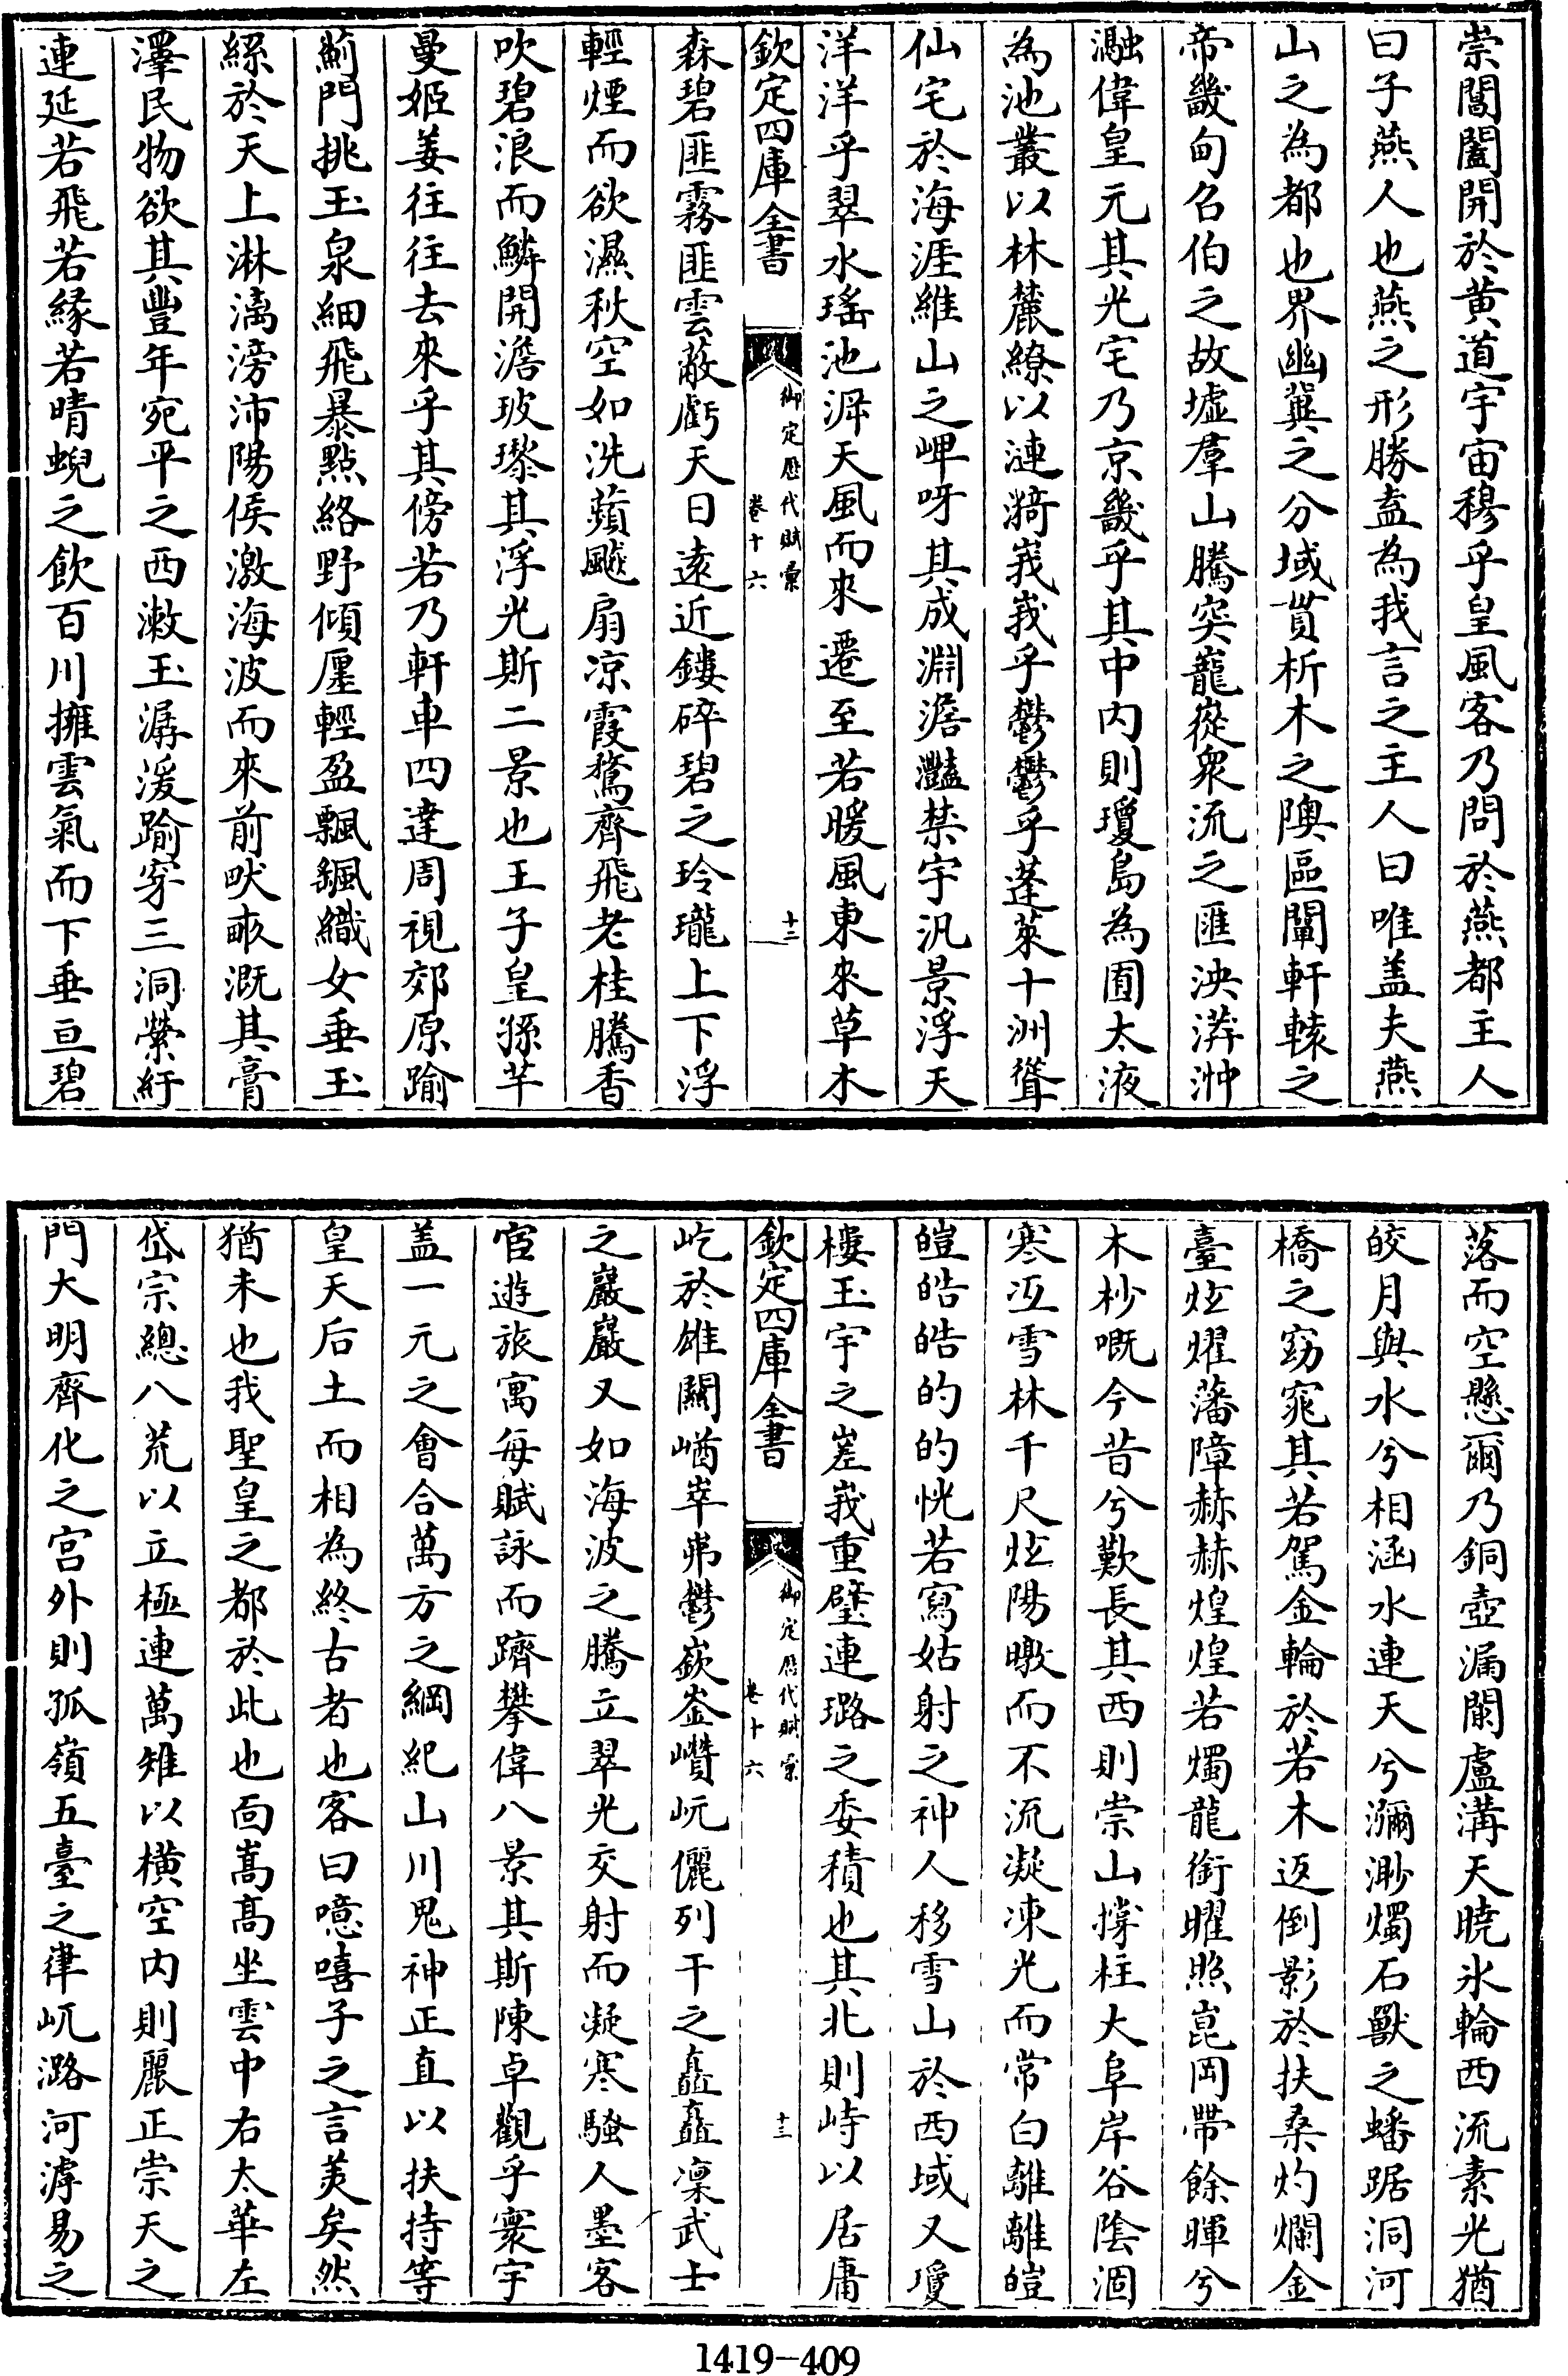 崇閶闔開於黄道宇宙穆乎皇風客乃問於燕都主人
曰子燕人也燕之形勝盍為我言之主人曰唯盖夫燕
山之為都也界幽冀之分域貫析木之隩區闡軒轅之
帝畿甸召伯之故墟羣山騰突巃嵷衆流之匯泱漭沖
瀜偉皇元其光宅乃京畿乎其中内則瓊島為囿太液
為池叢以林麓繚以漣漪峩峩乎鬱鬱乎蓬萊十洲聳
仙宅於海涯維山之岬呀其成淵澹灩禁宇汎景浮天
洋洋乎翠水瑤池泙天風而來遷至若暖風東來草木
欽定四庫全書
御定歴代賦彙
卷十六
十二
森碧匪霧匪雲蔽虧天日遠近鏤碎碧之玲瓏上下浮
輕煙而欲濕秋空如洗蘋颷扇凉霞鶩齊飛老桂騰香
吹碧浪而鱗開澹玻瓈其浮光斯二景也王子皇孫芊
曼姬姜往往去來乎其傍若乃軒車四達周視郊原踰
薊門挑玉泉細飛暴點絡野傾廛輕盈飄颻織女垂玉
繇於天上淋漓滂沛陽侯激海波而來前畎畝溉其膏
澤民物欲其豐年宛平之西漱玉潺湲踰穿三洞縈紆
連延若飛若緣若晴蜺之飲百川擁雲氣而下垂亘碧
落而空懸爾乃銅壺漏闌盧溝天曉氷輪西流素光猶
皎月與水兮相涵水連天兮瀰渺燭石獸之蟠踞洞河
橋之窈窕其若駕金輪於若木返倒影於扶桑灼爛金
臺炫燿藩障赫赫煌煌若燭龍銜曜照崑岡帶餘暉兮
木杪嘅今昔兮歎長其西則崇山撐柱大阜岸谷陰涸
寒冱雪林千尺炫陽曒而不流凝凍光而常白離離皚
皚皓皓的的恍若寫姑射之神人移雪山於西域又瓊
樓玉宇之嵳峩重壁連璐之委積也其北則峙以居庸
欽定四庫全書
御定歴代賦彙
卷十六
十三
屹於雄關崷崒岪鬱嶔崟巑岏儷列干之矗矗凜武士
之巖巖又如海波之騰立翠光交射而凝寒騷人墨客
宦遊旅寓每賦詠而躋攀偉八景其斯陳卓觀乎寰宇
盖一元之會合萬方之綱紀山川鬼神正直以扶持等
皇天后土而相為終古者也客曰噫嘻子之言美矣然
猶未也我聖皇之都於此也面嵩高坐雲中右太華左
岱宗總八荒以立極連萬雉以横空内則麗正崇天之
門大明齊化之宫外則孤嶺五臺之嵂屼潞河滹易之
1419-409